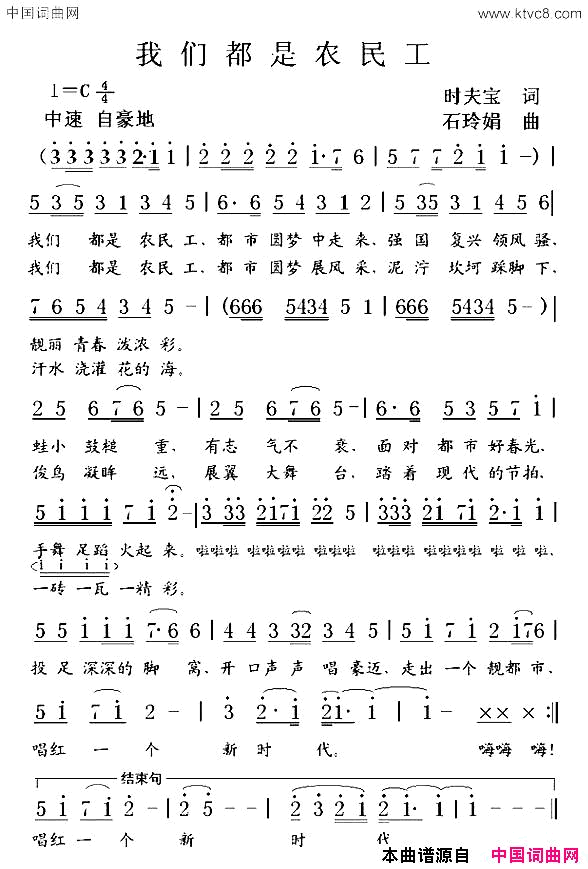 中国词曲网 www.ktvc8.com
我们都是农民工
1=C 4/4 时夫宝 词
中速 自豪地 石玲娟 曲
(3 3 3 3 3 2·1 1 | 2 2 2 2 2 1·7 6 | 5 7 7 1 2 1 -) |
5 3 5 3 1 3 4 5 | 6· 6 5 4 3 1 2 | 5 35 3 1 4 5 6 |
我们 都是 农民 工、都市 圆梦 中走 来,强国 复兴 领风 骚,
我们 都是 农民 工、都市 圆梦 展风 采,泥泞 坎坷 踩脚 下,
7 6 5 4 3 4 5 - | (666 5434 5 1 | 666 5434 5 -) |
靓丽 青春 泼浓 彩。
汗水 浇灌 花的 海。
2 5 6 7 6 5 - | 5 2 3 4 3 2 - | 6· 6 5 3 5 7 1 |
鼓槌 重,有志 气不 衰,面对 都市 好春光,
俊鸟 凝眸 远,展翼 大舞 台,踏着 现代 的节拍,
5 1 1 1 7 1 2 - | 3 33 2171 22 5 | 333 2171 2·1 1 |
手舞 足蹈 火起 来。啦啦啦 啦啦啦啦 啦啦 啦 啦啦啦 啦啦啦啦 啦 啦 啦,
(1 1 1 1)
一砖 一瓦 一精 彩。
5 5 1 1 1 7·6 6 | 4 4 3 32 3 5 | 5 1 7 1 2 176 |
投足 深深的 脚 窝,开口 声声 唱 豪迈,走出 一个 靓都 市,
5 1 7 1 2 - | 3 2·1 2·1 1 | 1 - ×× × :‖
唱红 一 个 新时 代。 嗨嗨 嗨!
结束句
5 1 7 1 2 - | 2 5 - - | 2 3 2 1 2·1 1 | 1 - - - ‖
唱红 一 个 新 时 代
本曲谱源自 中国词曲网